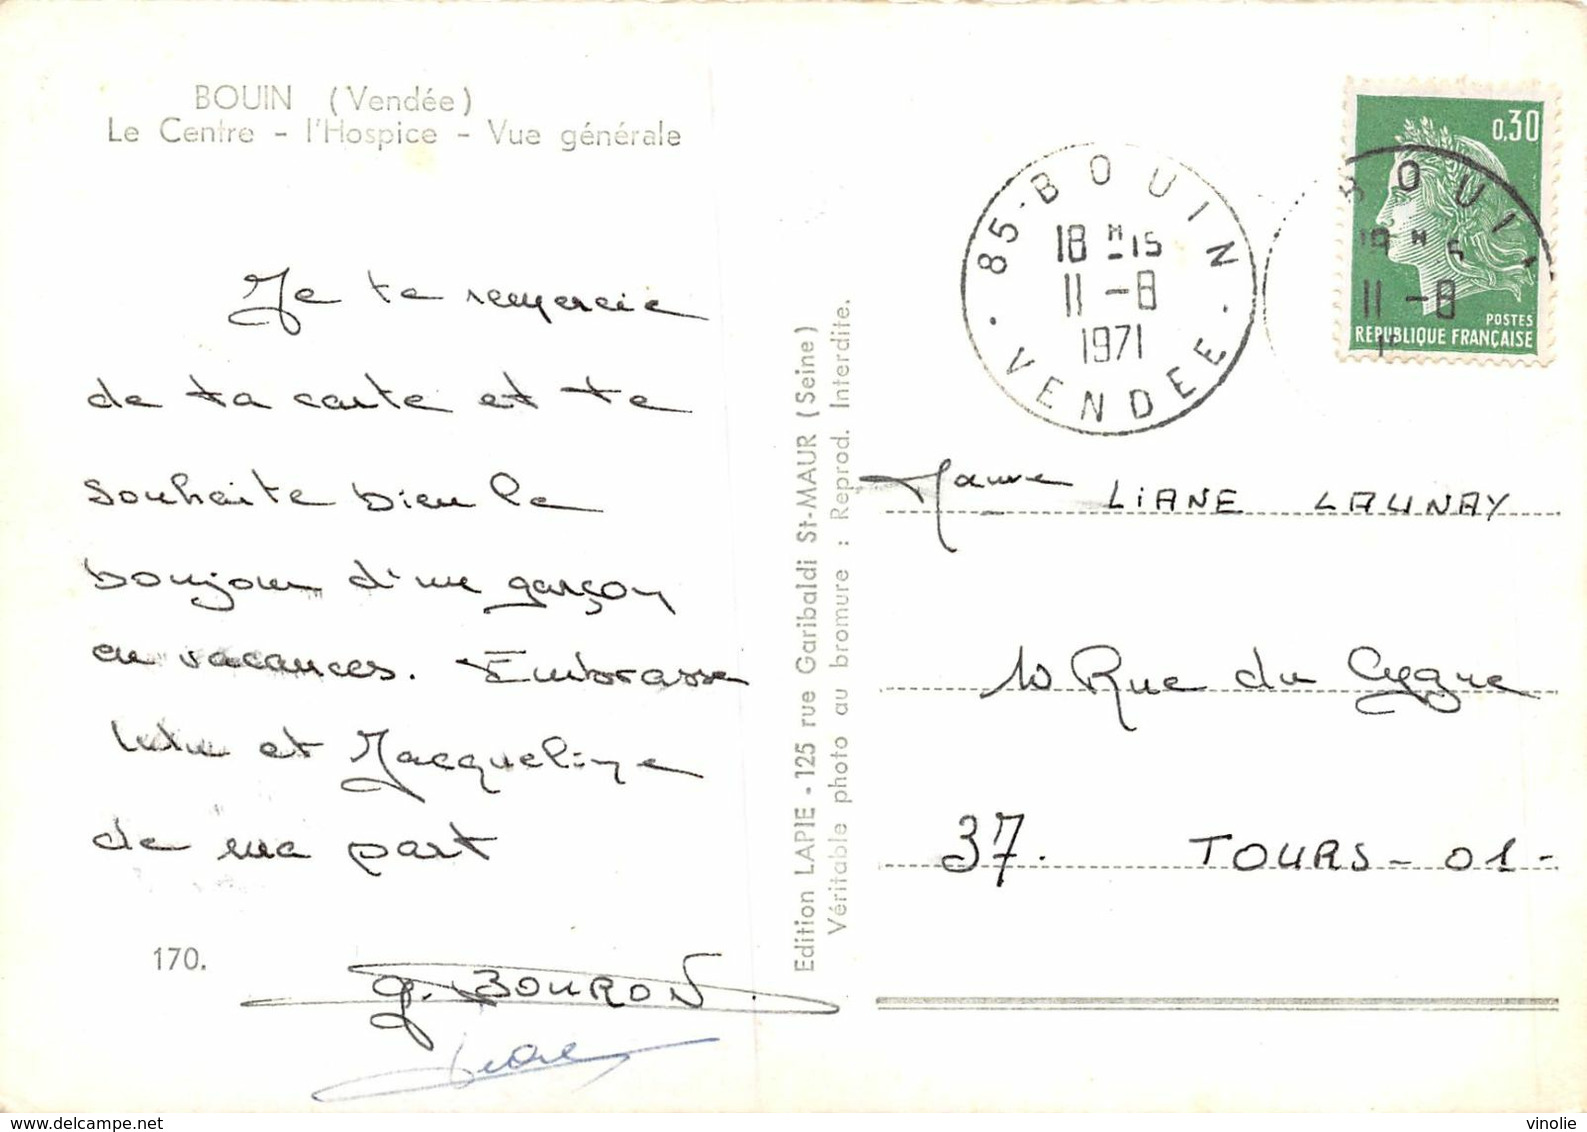 BOUIN (Vendée)
Le Centre - l'Hospice - Vue générale
Je te remercie
de ta carte et te
souhaite bien le
bonjour d'un garçon
en vacances. Embrasse
et Jacqueline
de ma part
170.
g. BOURON
Edition LAPIE - 125 rue Garibaldi St-MAUR (Seine)
Véritable photo au bromure : Reprod. Interdite.
85 - BOUIN
18 H 15
11 - 8
1971
VENDEE
0,30
POSTES
REPUBLIQUE FRANÇAISE
BOUI
11 - 8
LIANE LAUNAY
10 Rue du Cygne
37. TOURS - 01 -
www.delcampe.net
vinolie